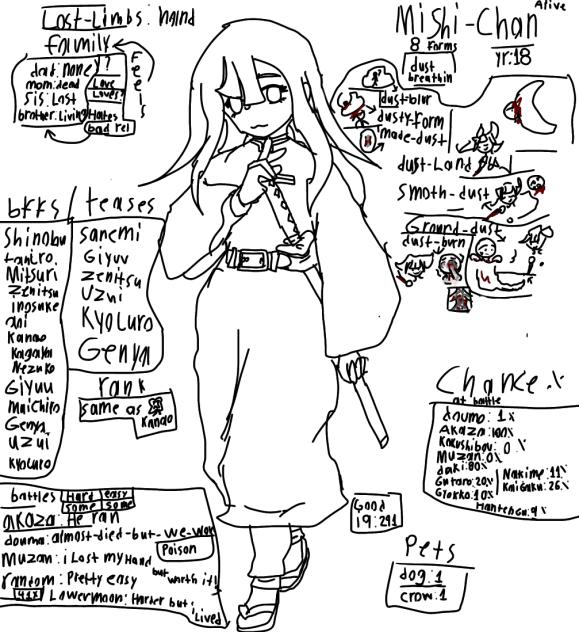 Lost-Limbs: haind
family
Feels
dad: none
mom: dead
sis: Last
brother: Living
?
Love
Loves?
Hates
bad rel
Mishi-Chan
Alive
8 forms
yr:18
dust
breathin
dust-blur
dusty-form
made-dust
dust-Land
Smoth-dust
Ground-dust
dust-burn
bffs / teases
Shinobu
tanjiro
Mitsuri
Zenitsu
inosuke
aoi
Kanao
Kagaya
Nezuko
Giyuu
Muichiro
Genya
uzui
Kyoluro
Sanemi
Giyuu
Zenitsu
Uzui
Kyoluro
Genya
rank
same as
Kanao
battles
Hard easy
some some
akaza: He ran
douma: almost-died-but-we-won
Poison
Muzan: i Lost my Hand
but worth it!
random: Pretty easy
41x Lowermoon: Harter but i
Lived
Good
19:291
Chance.%
at battle
doumo: 1%
Akaza: 100%
Kokushibou: 0%
Muzan: 0%
daki: 80%
Gutaro: 20%
Giokko: 10%
Nakime: 11%
Kaigaku: 26%
Hantengu: 9%
Pets
dog: 1
crow: 1